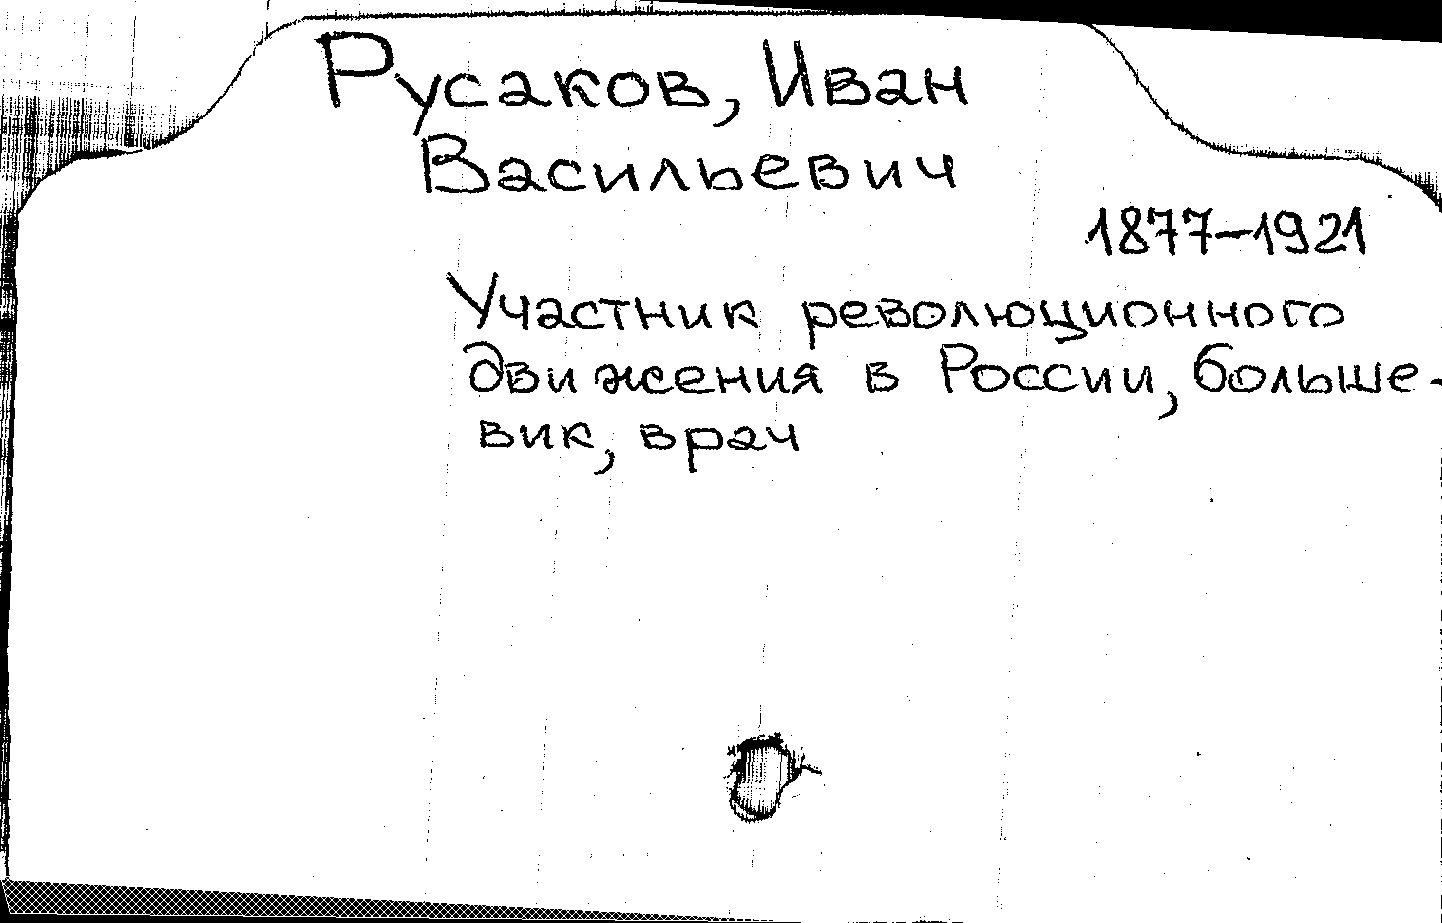 Русаков, Иван
Васильевич
1877–1921
Участник революционного
движения в России, больше-
вик, врач